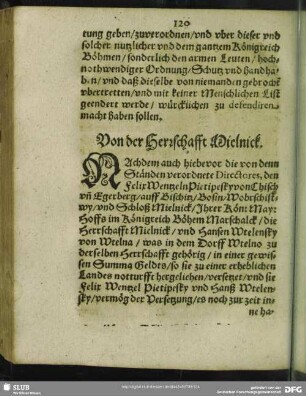 120
tung geben/zuverordnen/vnd vber dieser vnd
solcher nutzlicher vnd dem gantzem Königreich
Böhmen/sonderlich den armen Leuten/hoch-
nothwendiger Ordnung/Schutz vnd handha-
ben/vnd daß dieselbe von niemanden gebrochẽ
vbertretten/vnd mit keiner Menschlichen List
geendert werde/würcklichen zu defendiren
macht haben sollen.
Von der Herrschafft Mielnick.
NAchdem auch hiebevor die von denn
Ständen verordnete Directores, den
Felix Wentzeln Pietipesky von Chisch
vñ Egerberg/auff Bischitz/Bosin/Wobrschist-
wy/vnd Schloß Mielnick/Jhrer Könl: May:
Hoffs im Königreich Böhem Marschalck/die
Herrschafft Mielnick/vnd Hansen Wtelensky
von Wtelna/was in dem Dorff Wtelno zu
derselben Herrschafft gehörig/in einer gewis-
sen Summa Geldts/so sie zu einer erheblichen
Landes notturfft hergeliehen/versetzet/vnd sie
Felix Wentzel Pietipesky vnd Hanß Wtelen-
sky/vermög der Versetzung/es noch zur zeit in-
ne ha-
SLUB